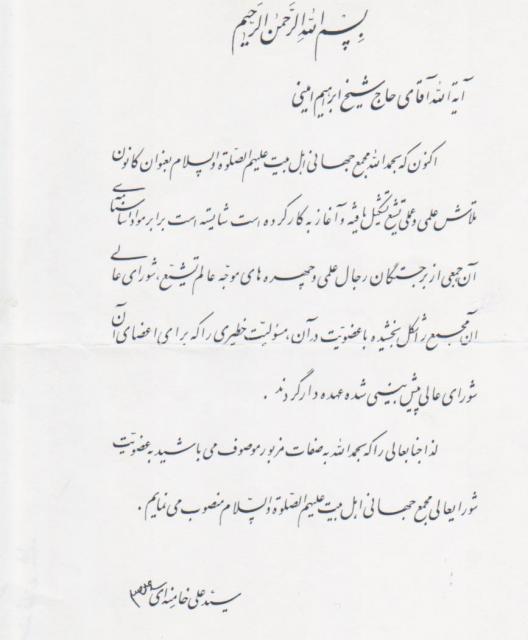 بِسْمِ اللهِ الرَّحْمٰنِ الرَّحِیْمِ
آیة الله آقای حاج شیخ ابراهیم امینی
اکنون که بحمدالله مجمع جهانی اهل بیت علیهم الصّلوة والسلام بعنوان کانون
تلاش علمی و عملی تشیع تشکیل یافته و آغاز به کار کرده است شایسته است برابر مواد اساسنامه‌ی
آن جمعی از برجستگان رجال علمی و چهره های موجّه عالم تشیّع، شورای عالی
آن مجمع را شکل بخشیده با عضویّت در آن، مسؤلیّت خطیری را که برای اعضای آن
شورای عالی پیش بینی شده عهده دار گردند .
لذا جنابعالی را که بحمدالله به صفات مزبور موصوف می باشید به عضویّت
شورایعالی مجمع جهانی اهل بیت علیهم الصّلوة والسّلام منصوب می نمایم .
سیّد علی خامنه ای